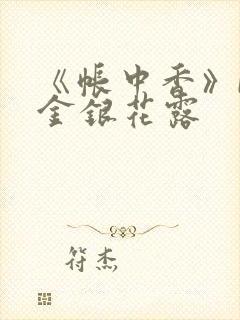 《帐中香》
金银花露
符杰